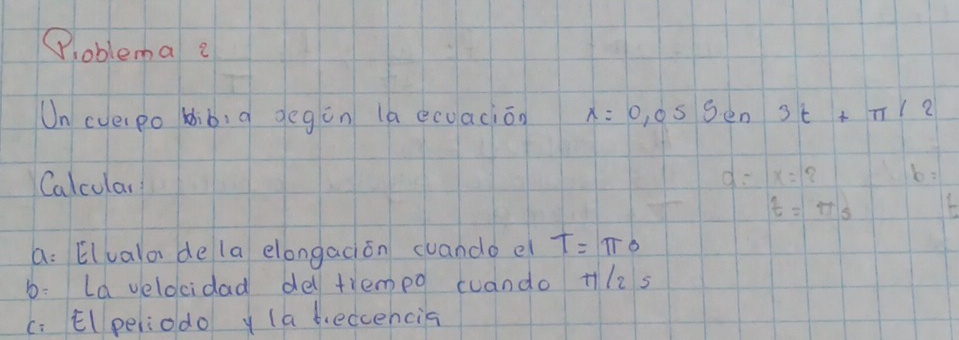 Problema 2
Un cuerpo vibra según la ecuación x = 0,05 Sen 3t + π/2
Calcular: a= x=? b=
t = πs t
a: El valor de la elongación cuando el T= π s
b= La velocidad del tiempo cuando π/2 s
c: El periodo y la freccencia